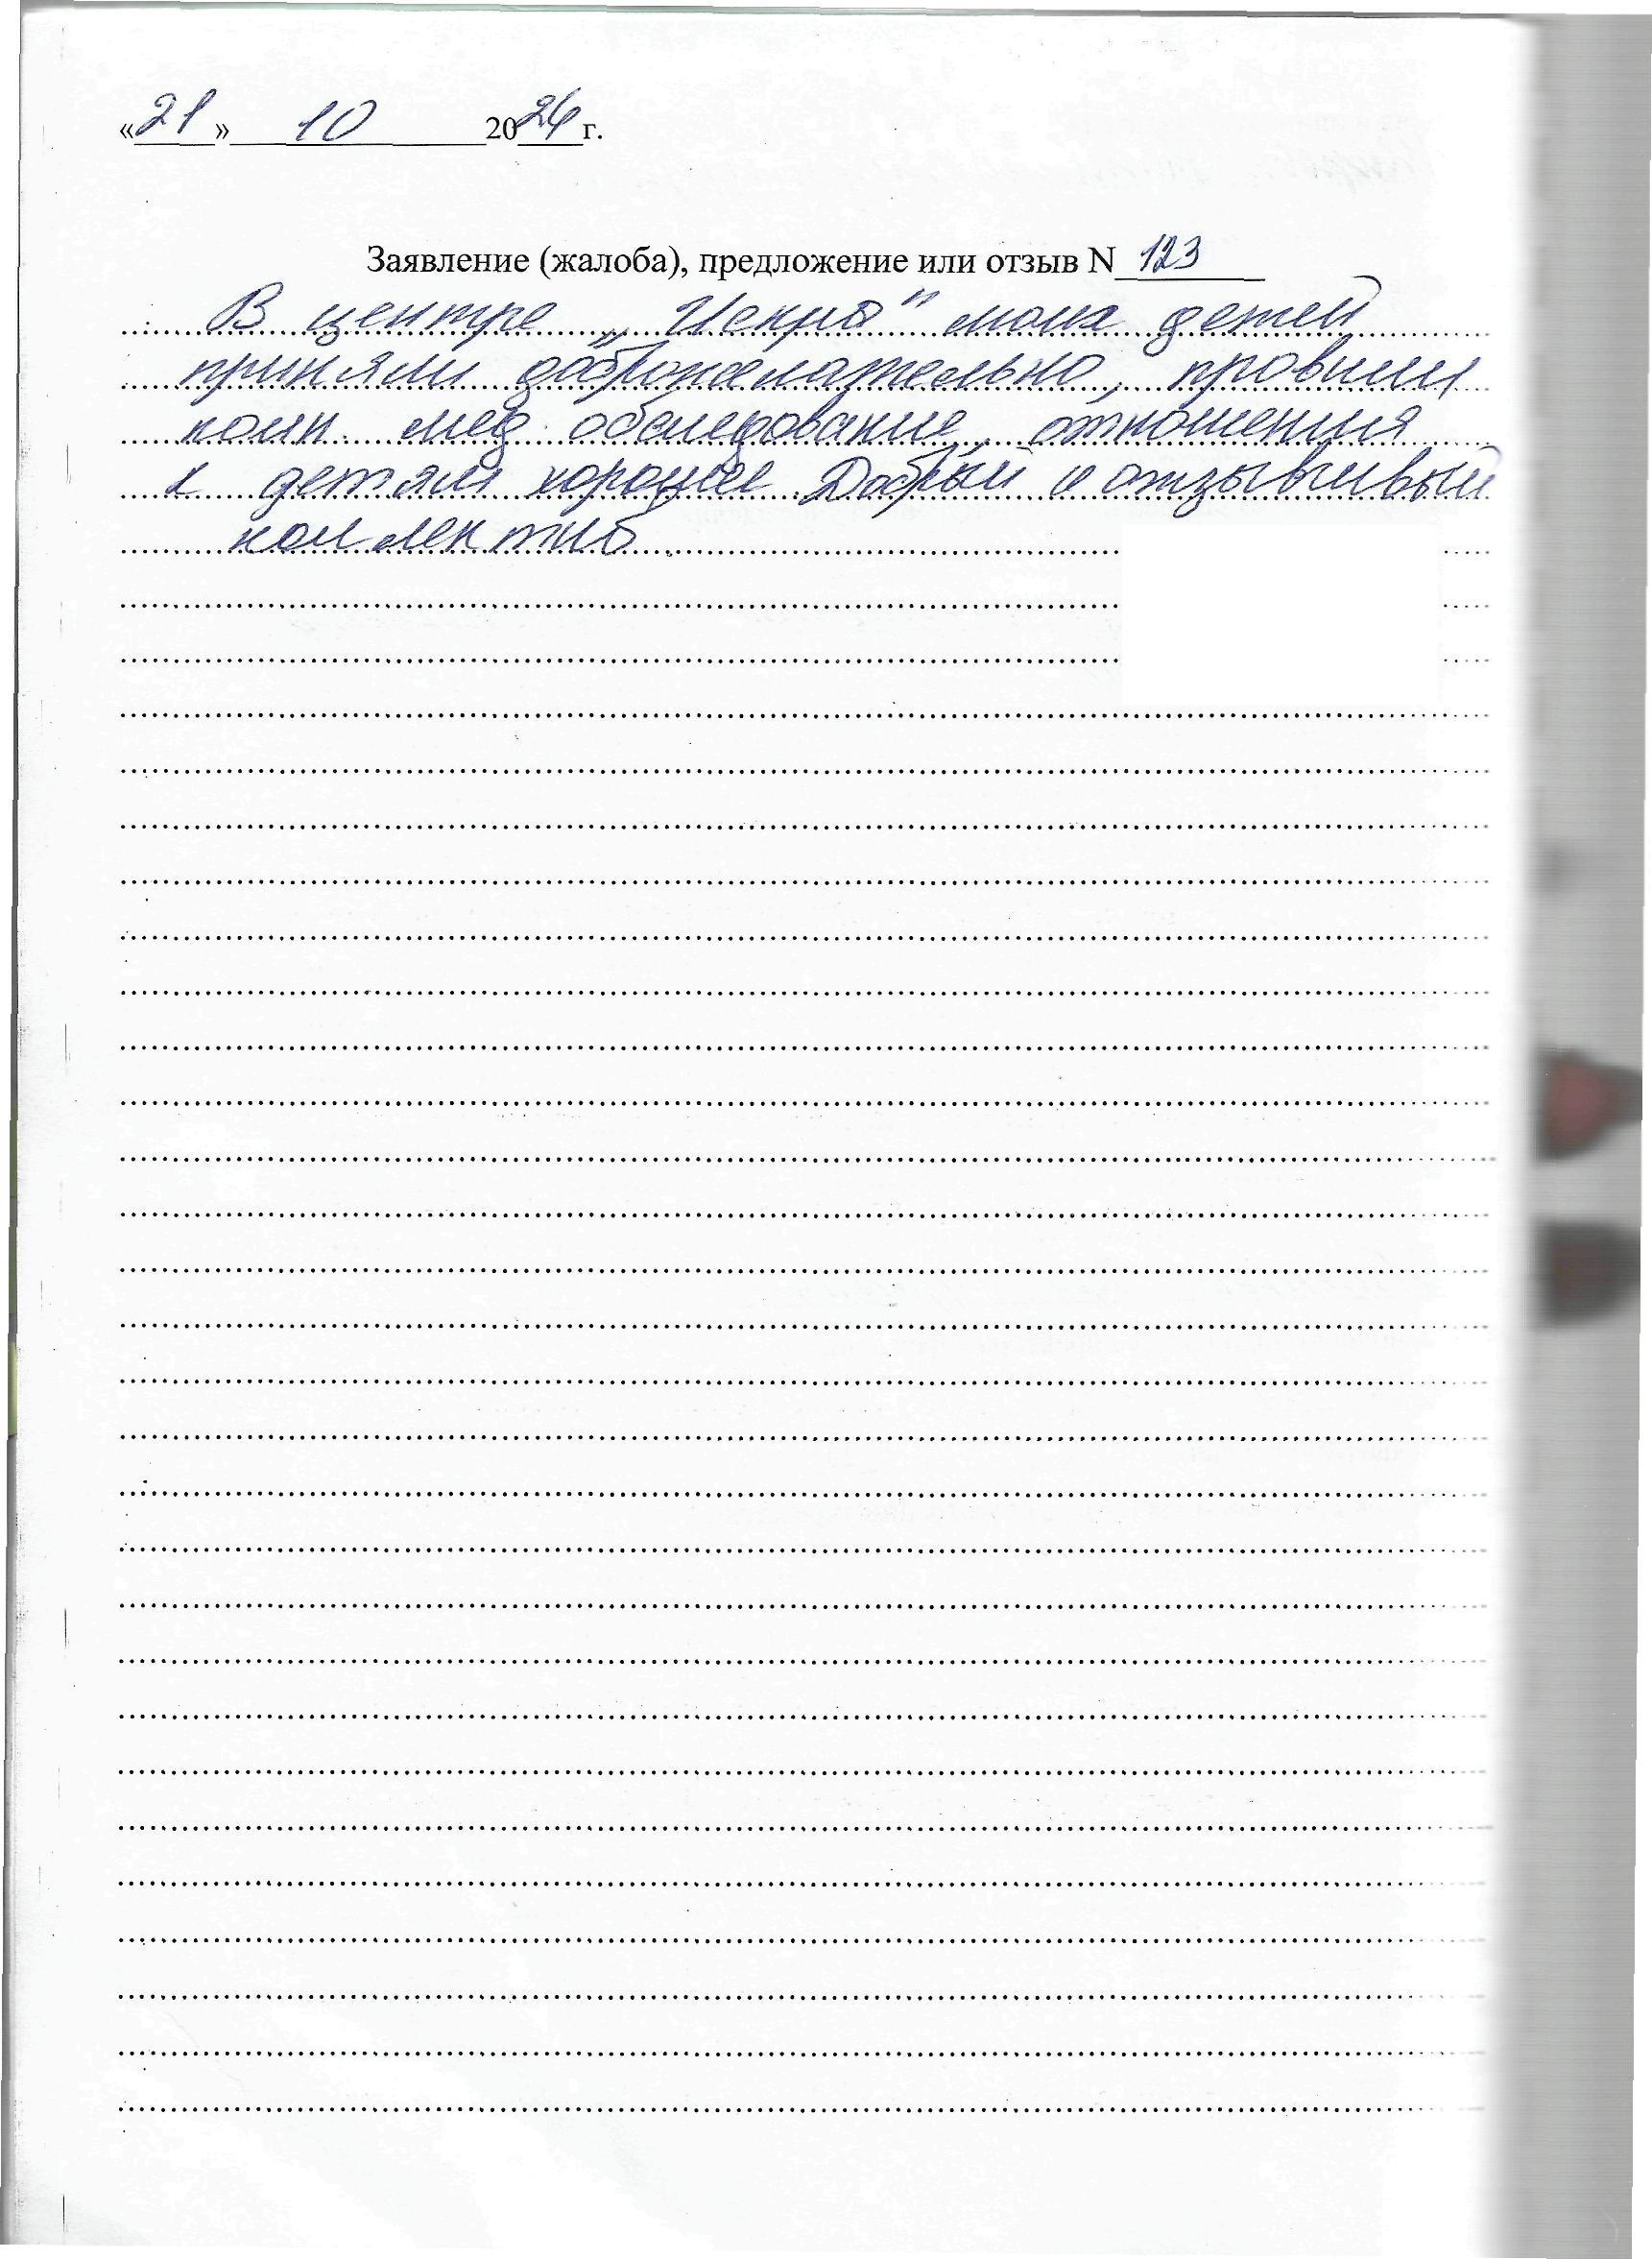 «21» 10 2024 г.
Заявление (жалоба), предложение или отзыв N 123
В центре „Искра" моих детей
приняли доброжелательно, провили
комп. мед. обследование, отношения
к детям хорошее Добрый и отзывчивый
коллектив.